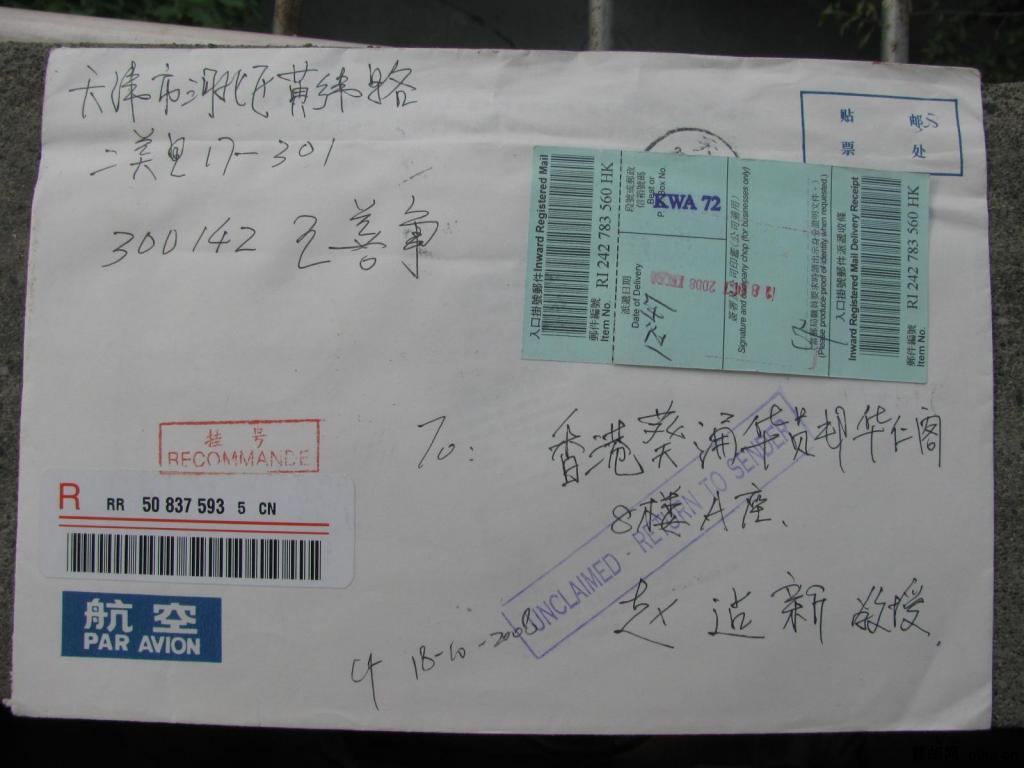 天津市河北区黄纬路
二英里17-301
300142 王善军
贴 邮
票 处
入口掛號郵件Inward Registered Mail
郵件編號 RI 242 783 560 HK
Item No.
段號或郵政
信箱號碼
Beat or
P.O. Box No.
KWA 72
派遞日期
Date of Delivery
12:47
2008
Signature and company chop (for businesses only)
(Please produce proof of identity when requested.)
入口掛號郵件派遞收條
Inward Registered Mail Delivery Receipt
郵件編號 RI 242 783 560 HK
Item No.
挂 号
RECOMMANDE
R RR 50 837 593 5 CN
航空
PAR AVION
To: 香港葵涌华员邨华仁阁
8楼A座.
UNCLAIMED - RETURN TO SENDER
新教授.
18-10-2008